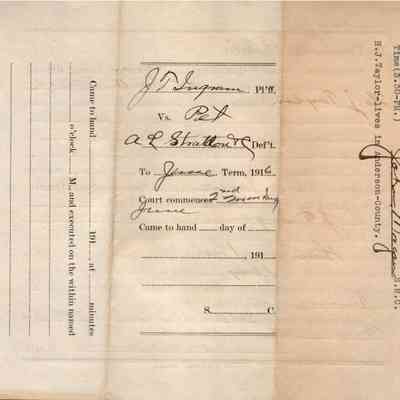 J T Ingram Pl'ff.
Vs. Pet
A L Stratton Def't.
To June Term, 1916
Court commences 2nd Monday
June
Came to hand day of
, 191
S. C.
Came to hand 191 , at minutes
o'clock M., and executed on the within named
Time(3.30-PM.)
H.J.Taylor-lives in Anderson-County.